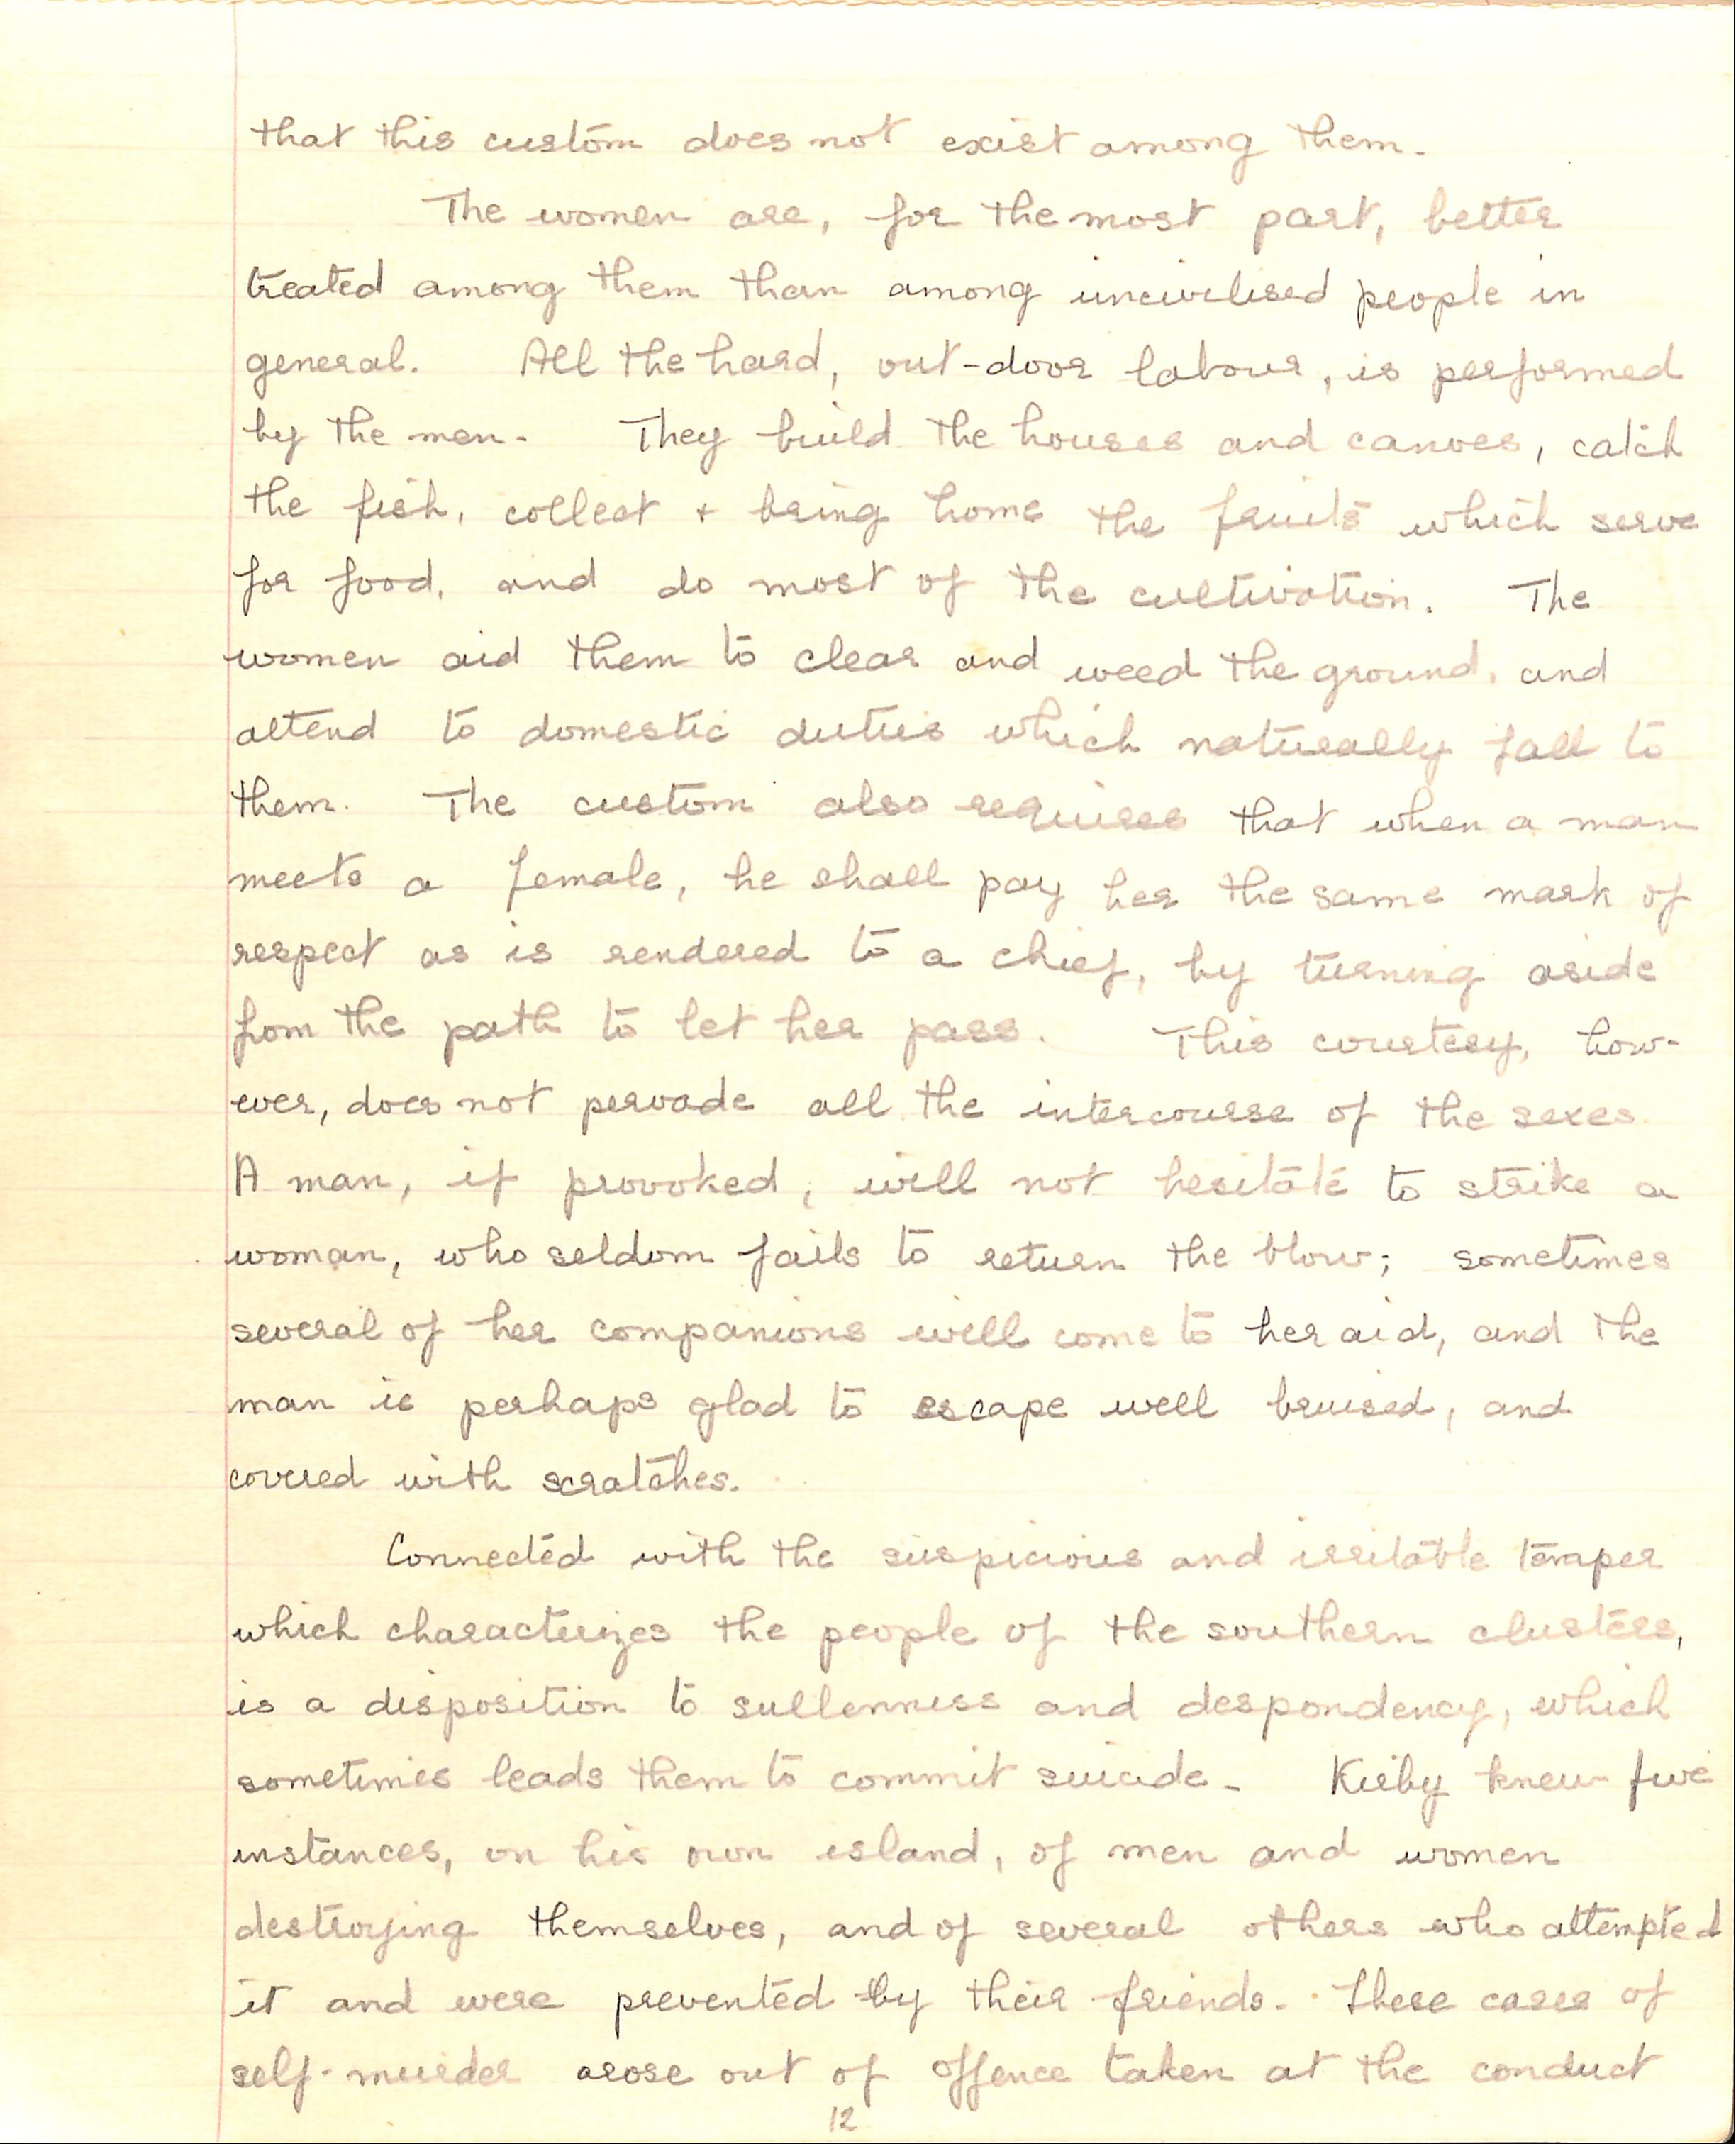 that this custom does not exist among them.
The women are, for the most part, better
treated among them than among uncivilised people in
general. All the hard, out-door labour, is performed
by the men. They build the houses and canoes, catch
the fish, collect + bring home the fruits which serve
for food, and do most of the cultivation. The
women aid them to clear and weed the ground, and
attend to domestic duties which naturally fall to
them. The custom also requires that when a man
meets a female, he shall pay her the same mark of
respect as is rendered to a chief, by turning aside
from the path to let her pass. This courtesy, how-
ever, does not pervade all the intercourse of the sexes.
A man, if provoked, will not hesitate to strike a
woman, who seldom fails to return the blow; sometimes
several of her companions will come to her aid, and the
man is perhaps glad to escape well bruised, and
covered with scratches.
Connected with the suspicious and irritable temper
which characterizes the people of the southern clusters,
is a disposition to sullenness and despondency, which
sometimes leads them to commit suicide. Kirby knew five
instances, on his own island, of men and women
destroying themselves, and of several others who attempted
it and were prevented by their friends. These cases of
self-murder arose out of offence taken at the conduct
12